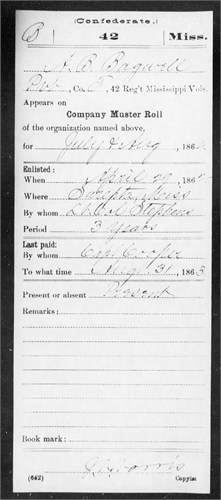 (Confederate.)
B 42 Miss.
A. B. Bagwell
Co. , 42 Reg't Mississippi Vols.
Appears on
Company Muster Roll
of the organization named above,
for July & Aug, 186
Enlisted:
When April 29, 186
Where Miss
By whom Lt Col Stephens
Period 3 Years
Last paid:
By whom Cap Cooper
To what time Aug 31, 1863
Present or absent Present
Remarks:
Book mark:
(642) Copyist.